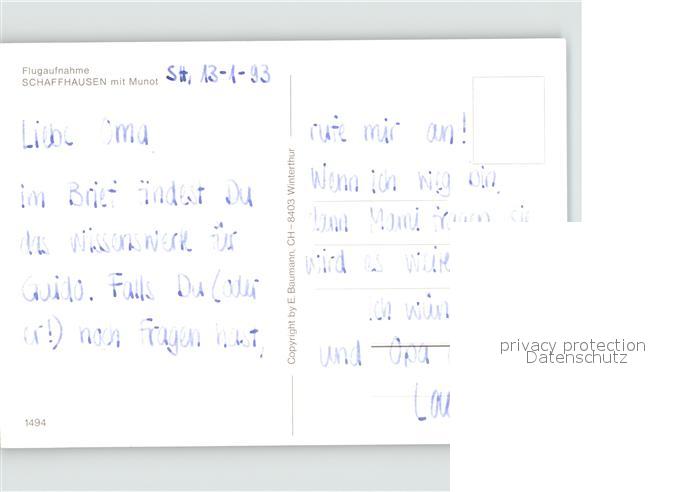 Flugaufnahme
SCHAFFHAUSEN mit Munot
SH, 13-1-93
Liebe Oma
im Brief findest Du
das wissenswerte für
Guido. Falls Du (oder
er!) noch Fragen hast,
1494
Copyright by E. Baumann, CH – 8403 Winterthur
rufe mir an!
Wenn ich weg bin,
dann Mami fragen, sie
wird es
ich
und Opa
privacy protection
Datenschutz